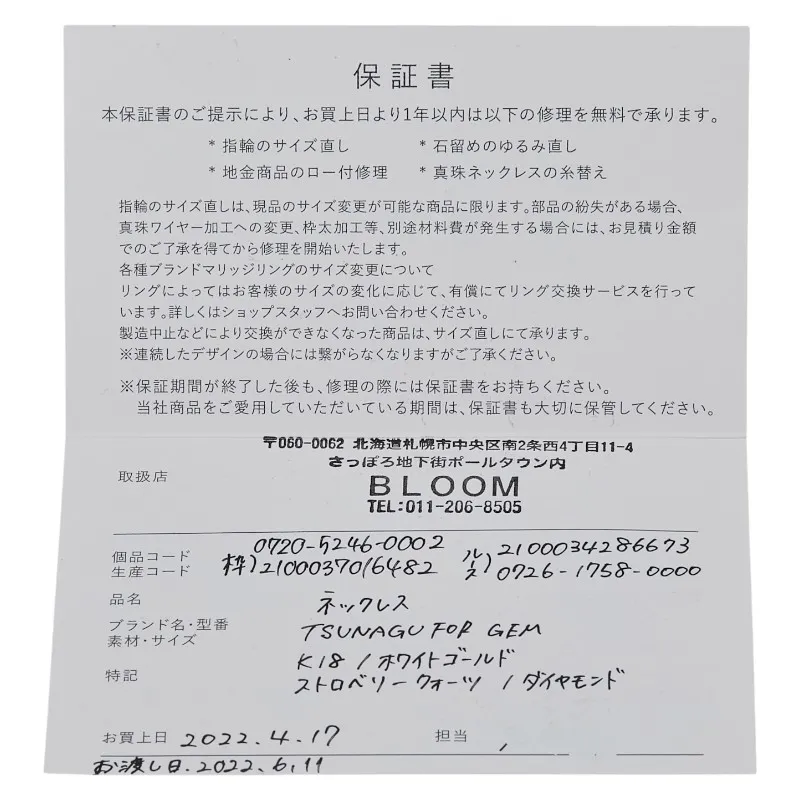 保証書
本保証書のご提示により、お買上日より1年以内は以下の修理を無料で承ります。
* 指輪のサイズ直し * 石留めのゆるみ直し
* 地金商品のロー付修理 * 真珠ネックレスの糸替え
指輪のサイズ直しは、現品のサイズ変更が可能な商品に限ります。部品の紛失がある場合、
真珠ワイヤー加工への変更、枠太加工等、別途材料費が発生する場合には、お見積り金額
でのご了承を得てから修理を開始いたします。
各種ブランドマリッジリングのサイズ変更について
リングによってはお客様のサイズの変化に応じて、有償にてリング交換サービスを行って
います。詳しくはショップスタッフへお問い合わせください。
製造中止などにより交換ができなくなった商品は、サイズ直しにて承ります。
※連続したデザインの場合には繋がらなくなりますがご了承ください。
※保証期間が終了した後も、修理の際には保証書をお持ちください。
当社商品をご愛用していただいている期間は、保証書も大切に保管してください。
〒060-0062 北海道札幌市中央区南2条西4丁目11-4
さっぽろ地下街ポールタウン内
取扱店 BLOOM
TEL:011-206-8505
個品コード 0720-5246-0002 ルース) 2100034286673
生産コード 枠) 2100037016482 0726-1758-0000
品名 ネックレス
ブランド名・型番 TSUNAGU FOR GEM
素材・サイズ
K18 / ホワイトゴールド
特記 ストロベリークォーツ / ダイヤモンド
お買上日 2022.4.17 担当
お渡し日.2022.6.11